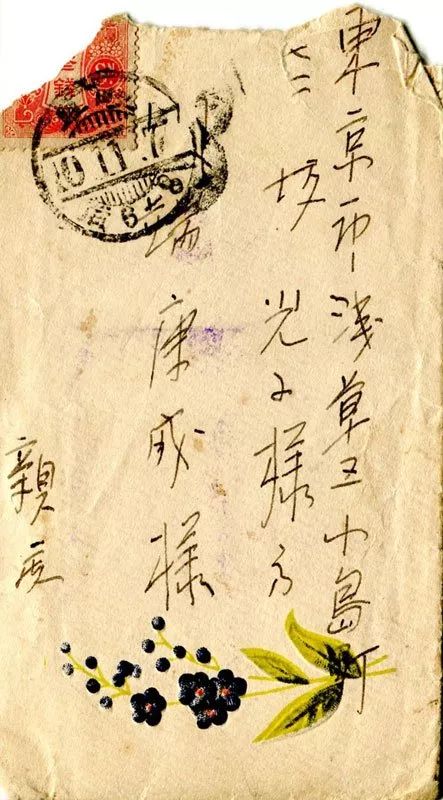 東京市浅草区小島町
七二
坂光子様方
端康成様
親展
10.11.7